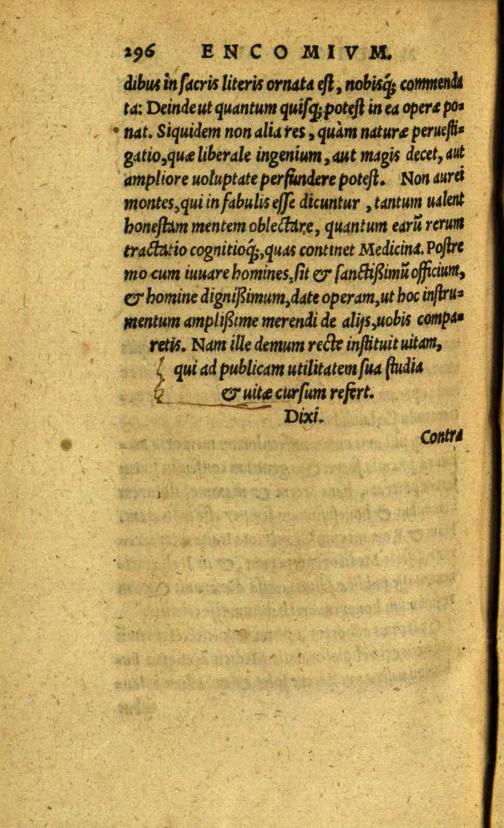 296 ENCOMIVM.
dibus in sacris literis ornata est, nobisq́; commenda
ta: Deinde ut quantum quisq; potest in ea operæ po=
nat. Siquidem non alia res, quàm naturæ peruesti=
gatio, quæ liberale ingenium, aut magis decet, aut
ampliore uoluptate perfundere potest. Non aurei
montes, qui in fabulis esse dicuntur, tantum ualent
honestam mentem oblectare, quantum earū rerum
tractatio cognitioq́;, quas continet Medicina. Postre
mo cum iuuare homines, sit & sanctißimū officium,
& homine dignißimum, date operam, ut hoc instru=
mentum amplißime merendi de alijs, uobis compa=
retis. Nam ille demum recte instituit uitam,
qui ad publicam utilitatem sua studia
& uitæ cursum refert.
Dixi.
Contra